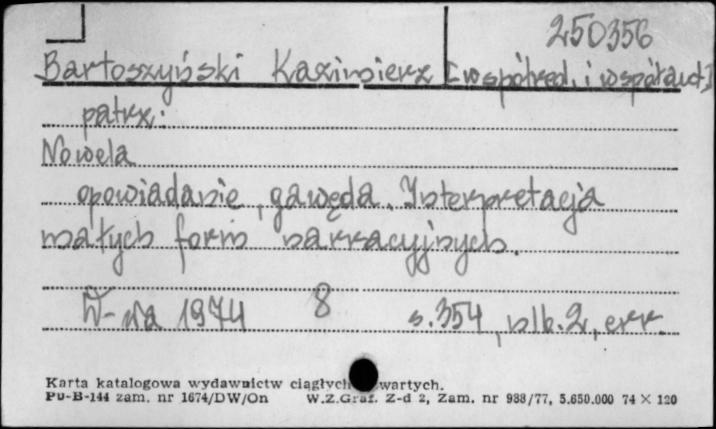 250356
Bartoszyński Kazimierz [współred. i współaut.]
patrz:
Nowela
opowiadanie, gawęda. Interpretacja
małych form narracyjnych.
W-wa 1974 8 s. 354, nlb. 2, err.
Karta katalogowa wydawnictw ciągłych wartych.
PU-B-144 zam. nr 1674/DW/On W.Z.Graf. Z-d 2, Zam. nr 988/77, 5.650.000 74 × 120